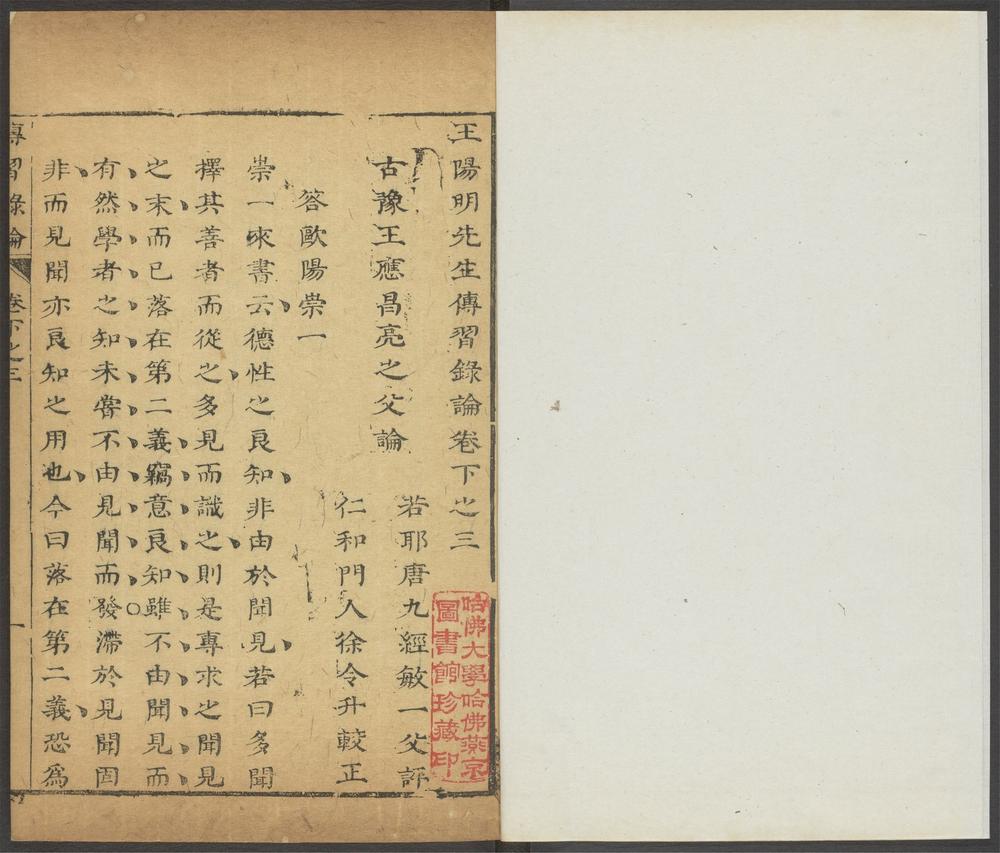 王陽明先生傳習錄論卷下之三
古豫王應昌亮之父論
若耶唐九經敏一父評
仁和門人徐令升較正
答歐陽崇一
崇一來書云德性之良知非由於聞見若曰多聞
擇其善者而從之多見而識之則是專求之聞見
之末而已落在第二義竊意良知雖不由聞見而
有然學者之知未嘗不由見聞而發滯於見聞固
非而見聞亦良知之用也今曰落在第二義恐爲
傳習錄論
卷下之三
一
哈佛大學哈佛燕京
圖書館珍藏印